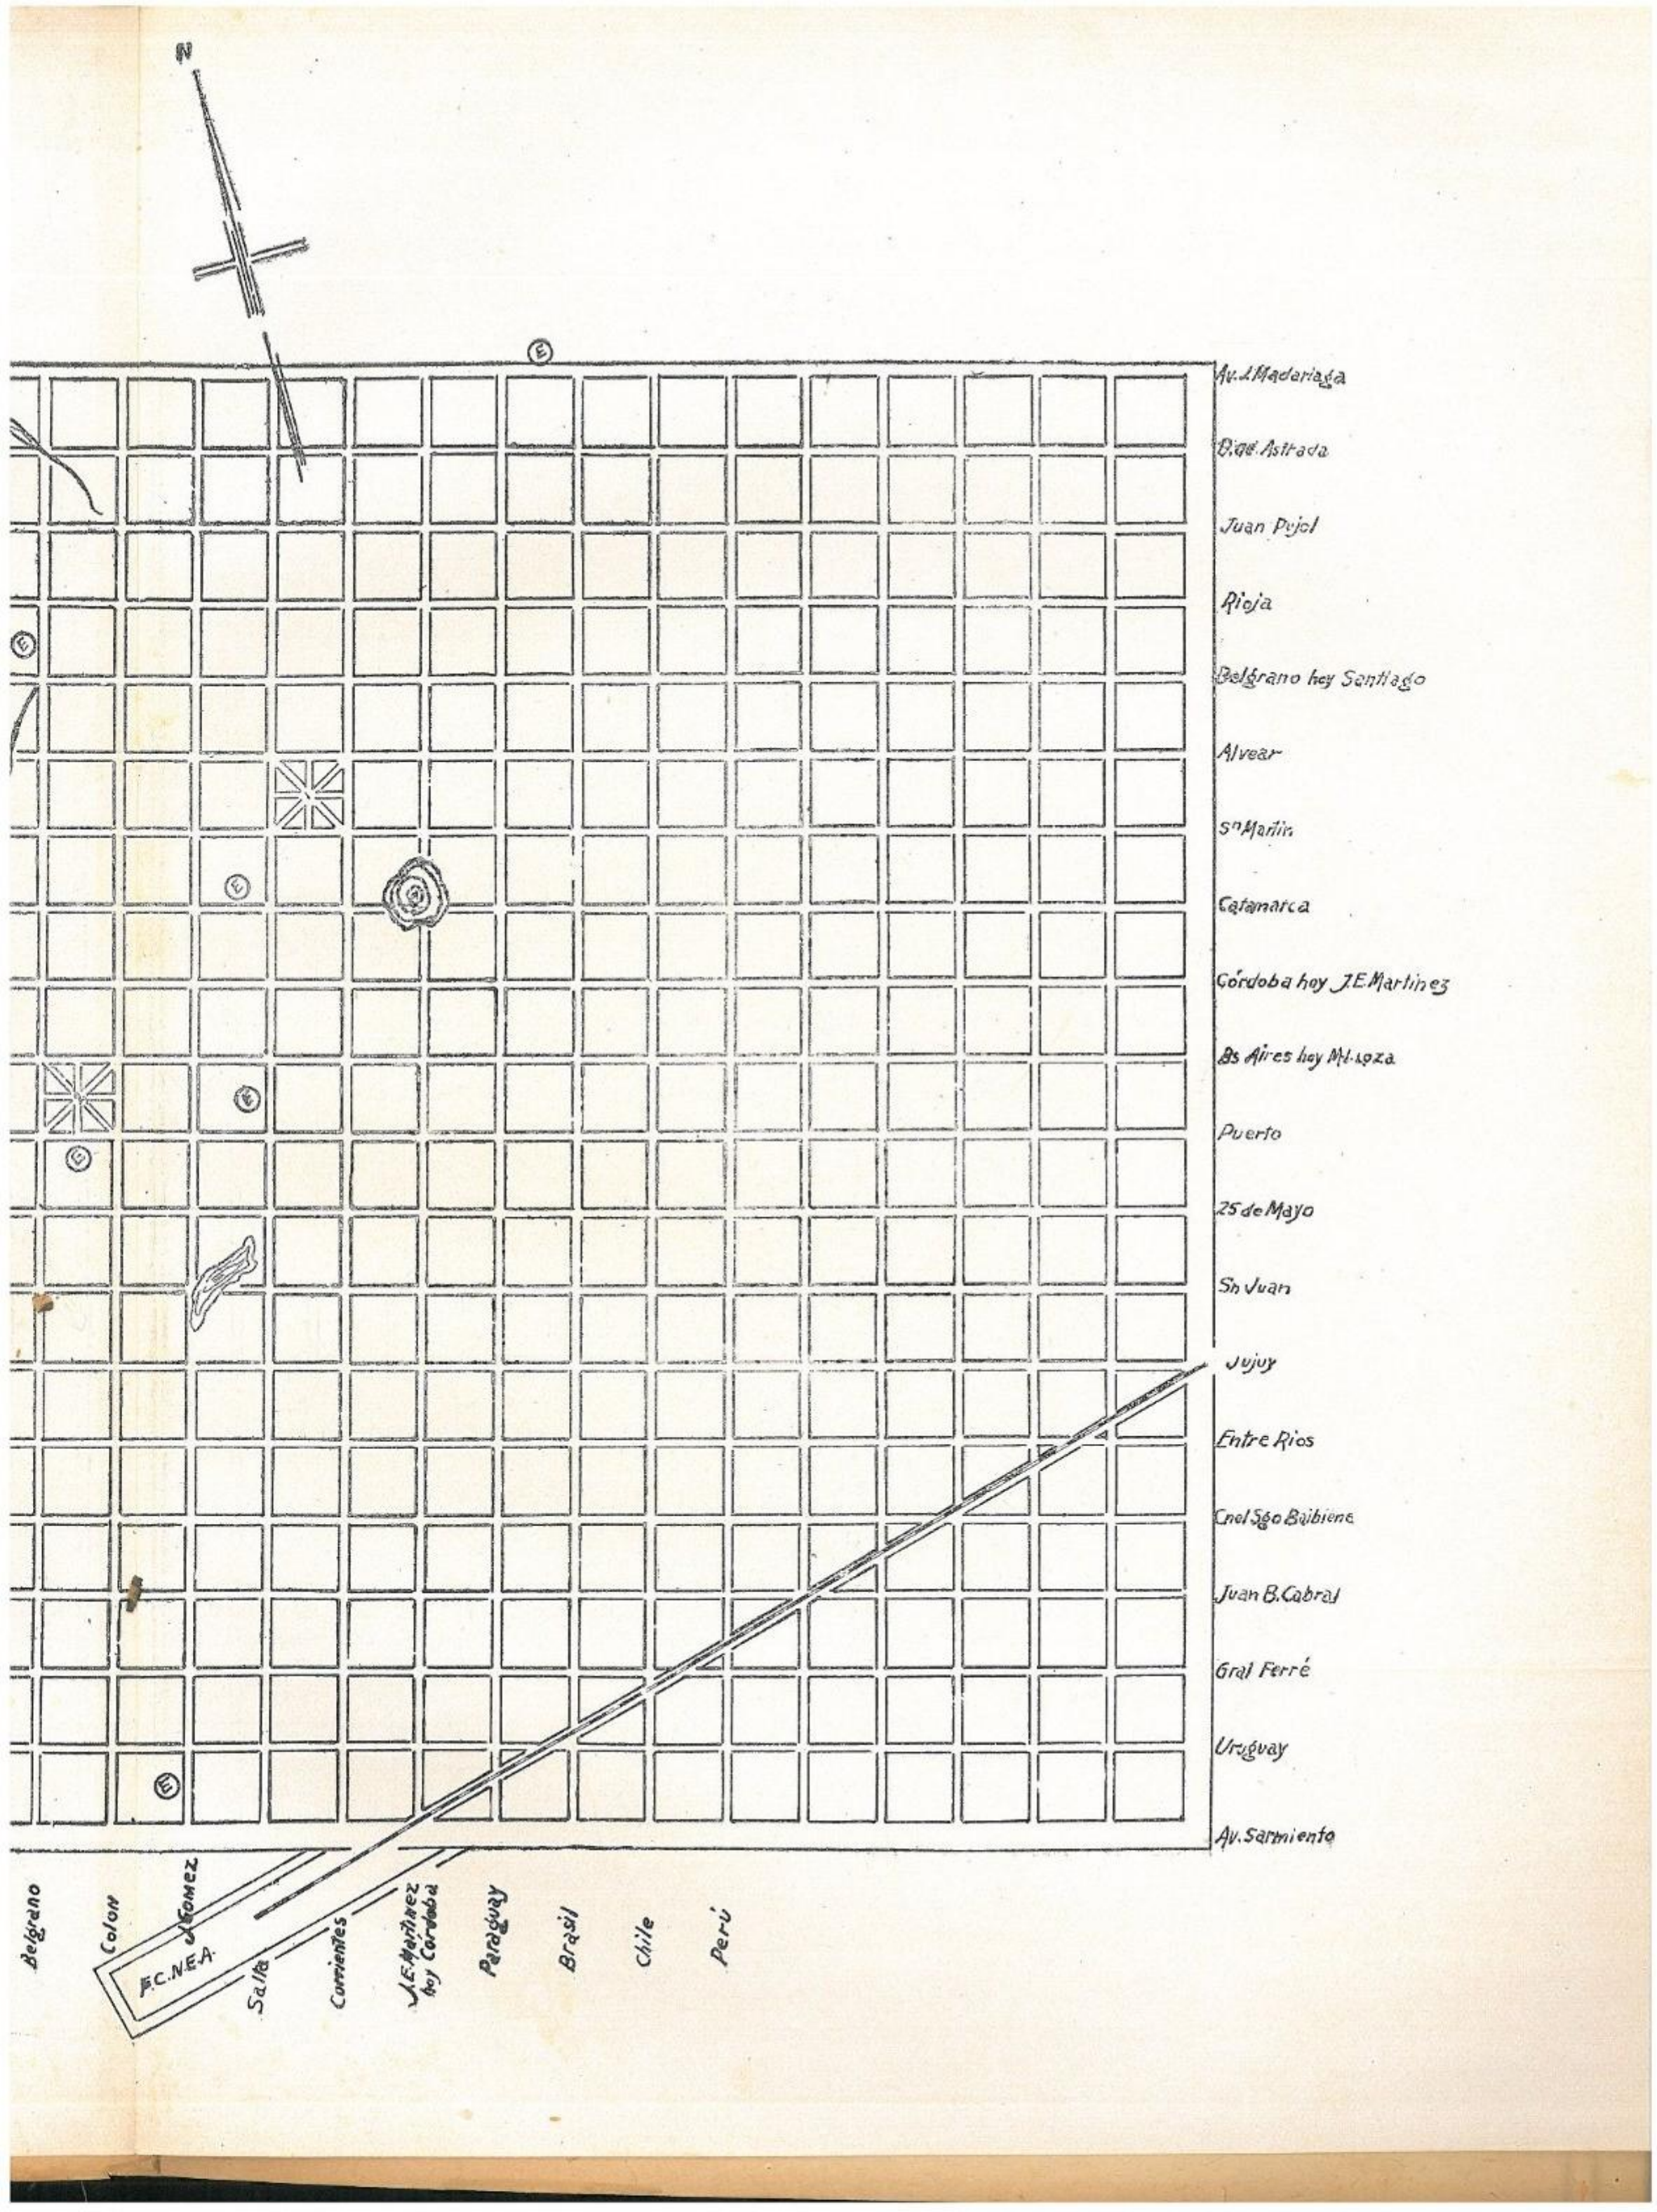 N
E
Av. J. Madariaga
B.qd. Astrada
Juan Pujol
Rioja
E
Belgrano hoy Santiago
Alvear
Sn Martin
E
Catamarca
Córdoba hoy J.E. Martinez
Bs Aires hoy
E
Puerto
E
25 de Mayo
Sn Juan
Jujuy
Entre Rios
Cnel Sgo Baibiene
Juan B. Cabral
Gral Ferré
Uruguay
E
Av. Sarmiento
Belgrano
Colon
J Gomez
F.C.N.E.A.
Salta
Corrientes
J.E. Martinez
hoy Cordoba
Paraguay
Brasil
Chile
Perú